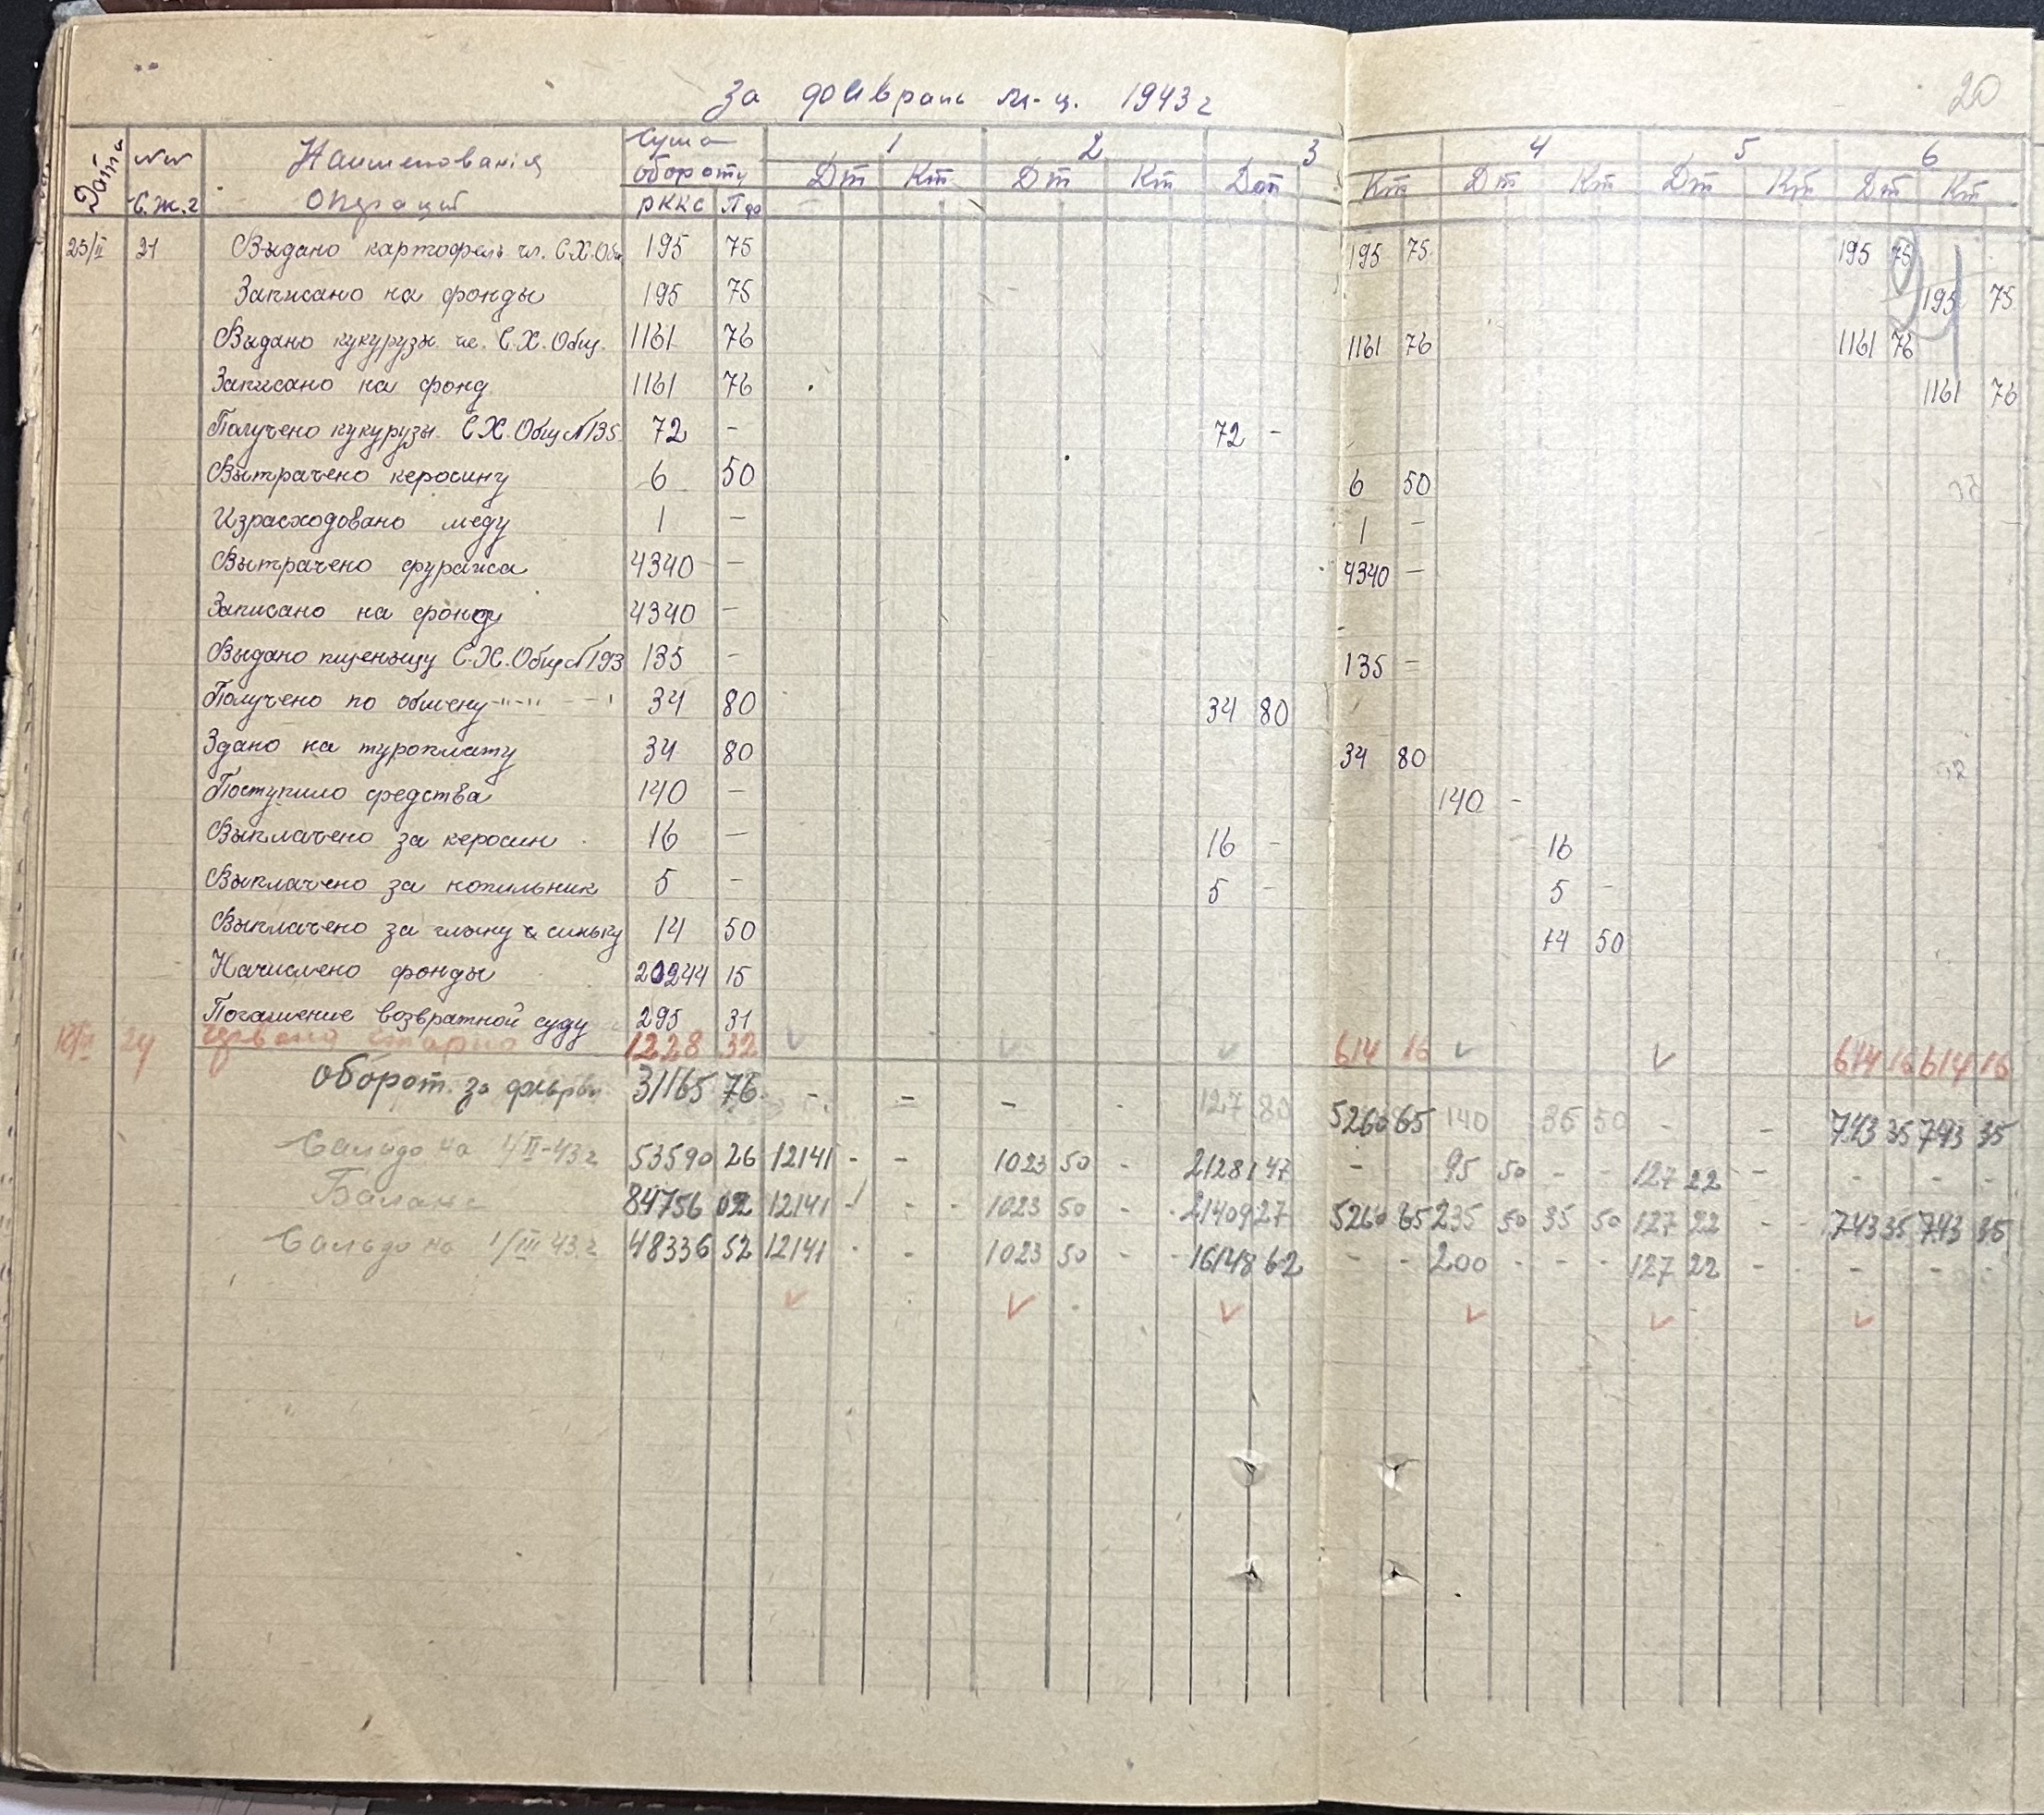 за февраль м-ц. 1943 г
20
Дата №№ С.Ж.г Наименованія Операций Сума обороту РККС Пф 1 Дт Кт 2 Дт Кт 3 Дт Кт 4 Дт Кт 5 Дт Кт 6 Дт Кт
25/II 21 Выдано картофель чл. С.Х.Общ. 195 75 195 75 195 75
Записано на фонды 195 75 195 75
Выдано кукурузы чл. С.Х. Общ. 1161 76 1161 76 1161 76
Записано на фонд 1161 76 1161 76
Получено кукурузы С.Х. Общ №135 72 - 72 -
Вытрачено керосину 6 50 6 50
Израсходовано меду 1 - 1 -
Вытрачено фуража 4340 - 4340 -
Записано на фонд 4340 -
Выдано пшеныцу С.Х. Общ №193 135 - 135 -
Получено по обмену -"-"- 34 80 34 80
Здано на туроплату 34 80 34 80
Поступило средства 140 - 140 -
Выплачено за керосин 16 - 16 - 16
Выплачено за копильник 5 - 5 - 5 -
Выплачено за глыну и синьку 14 50 14 50
Начислено фонды 20244 15
Погашение возвратной суду 295 31
24 1228 32 614 16 614 16 614 16
Оборот. за 31165 76 - - - - 127 80 5260 65 140 35 50 - - 743 35 743 35
Сальдо на 1/II-43 г 53590 26 12141 - - 1023 50 - 21281 47 - 95 50 - - 127 22 - - - -
Баланс 84756 02 12141 - - - 1023 50 - - 21409 27 5260 65 235 50 35 50 127 22 - - 743 35 743 35
Сальдо на 1/III 43 г 48336 52 12141 - - 1023 50 - - 16148 62 - - 200 - - - 127 22 - - - -